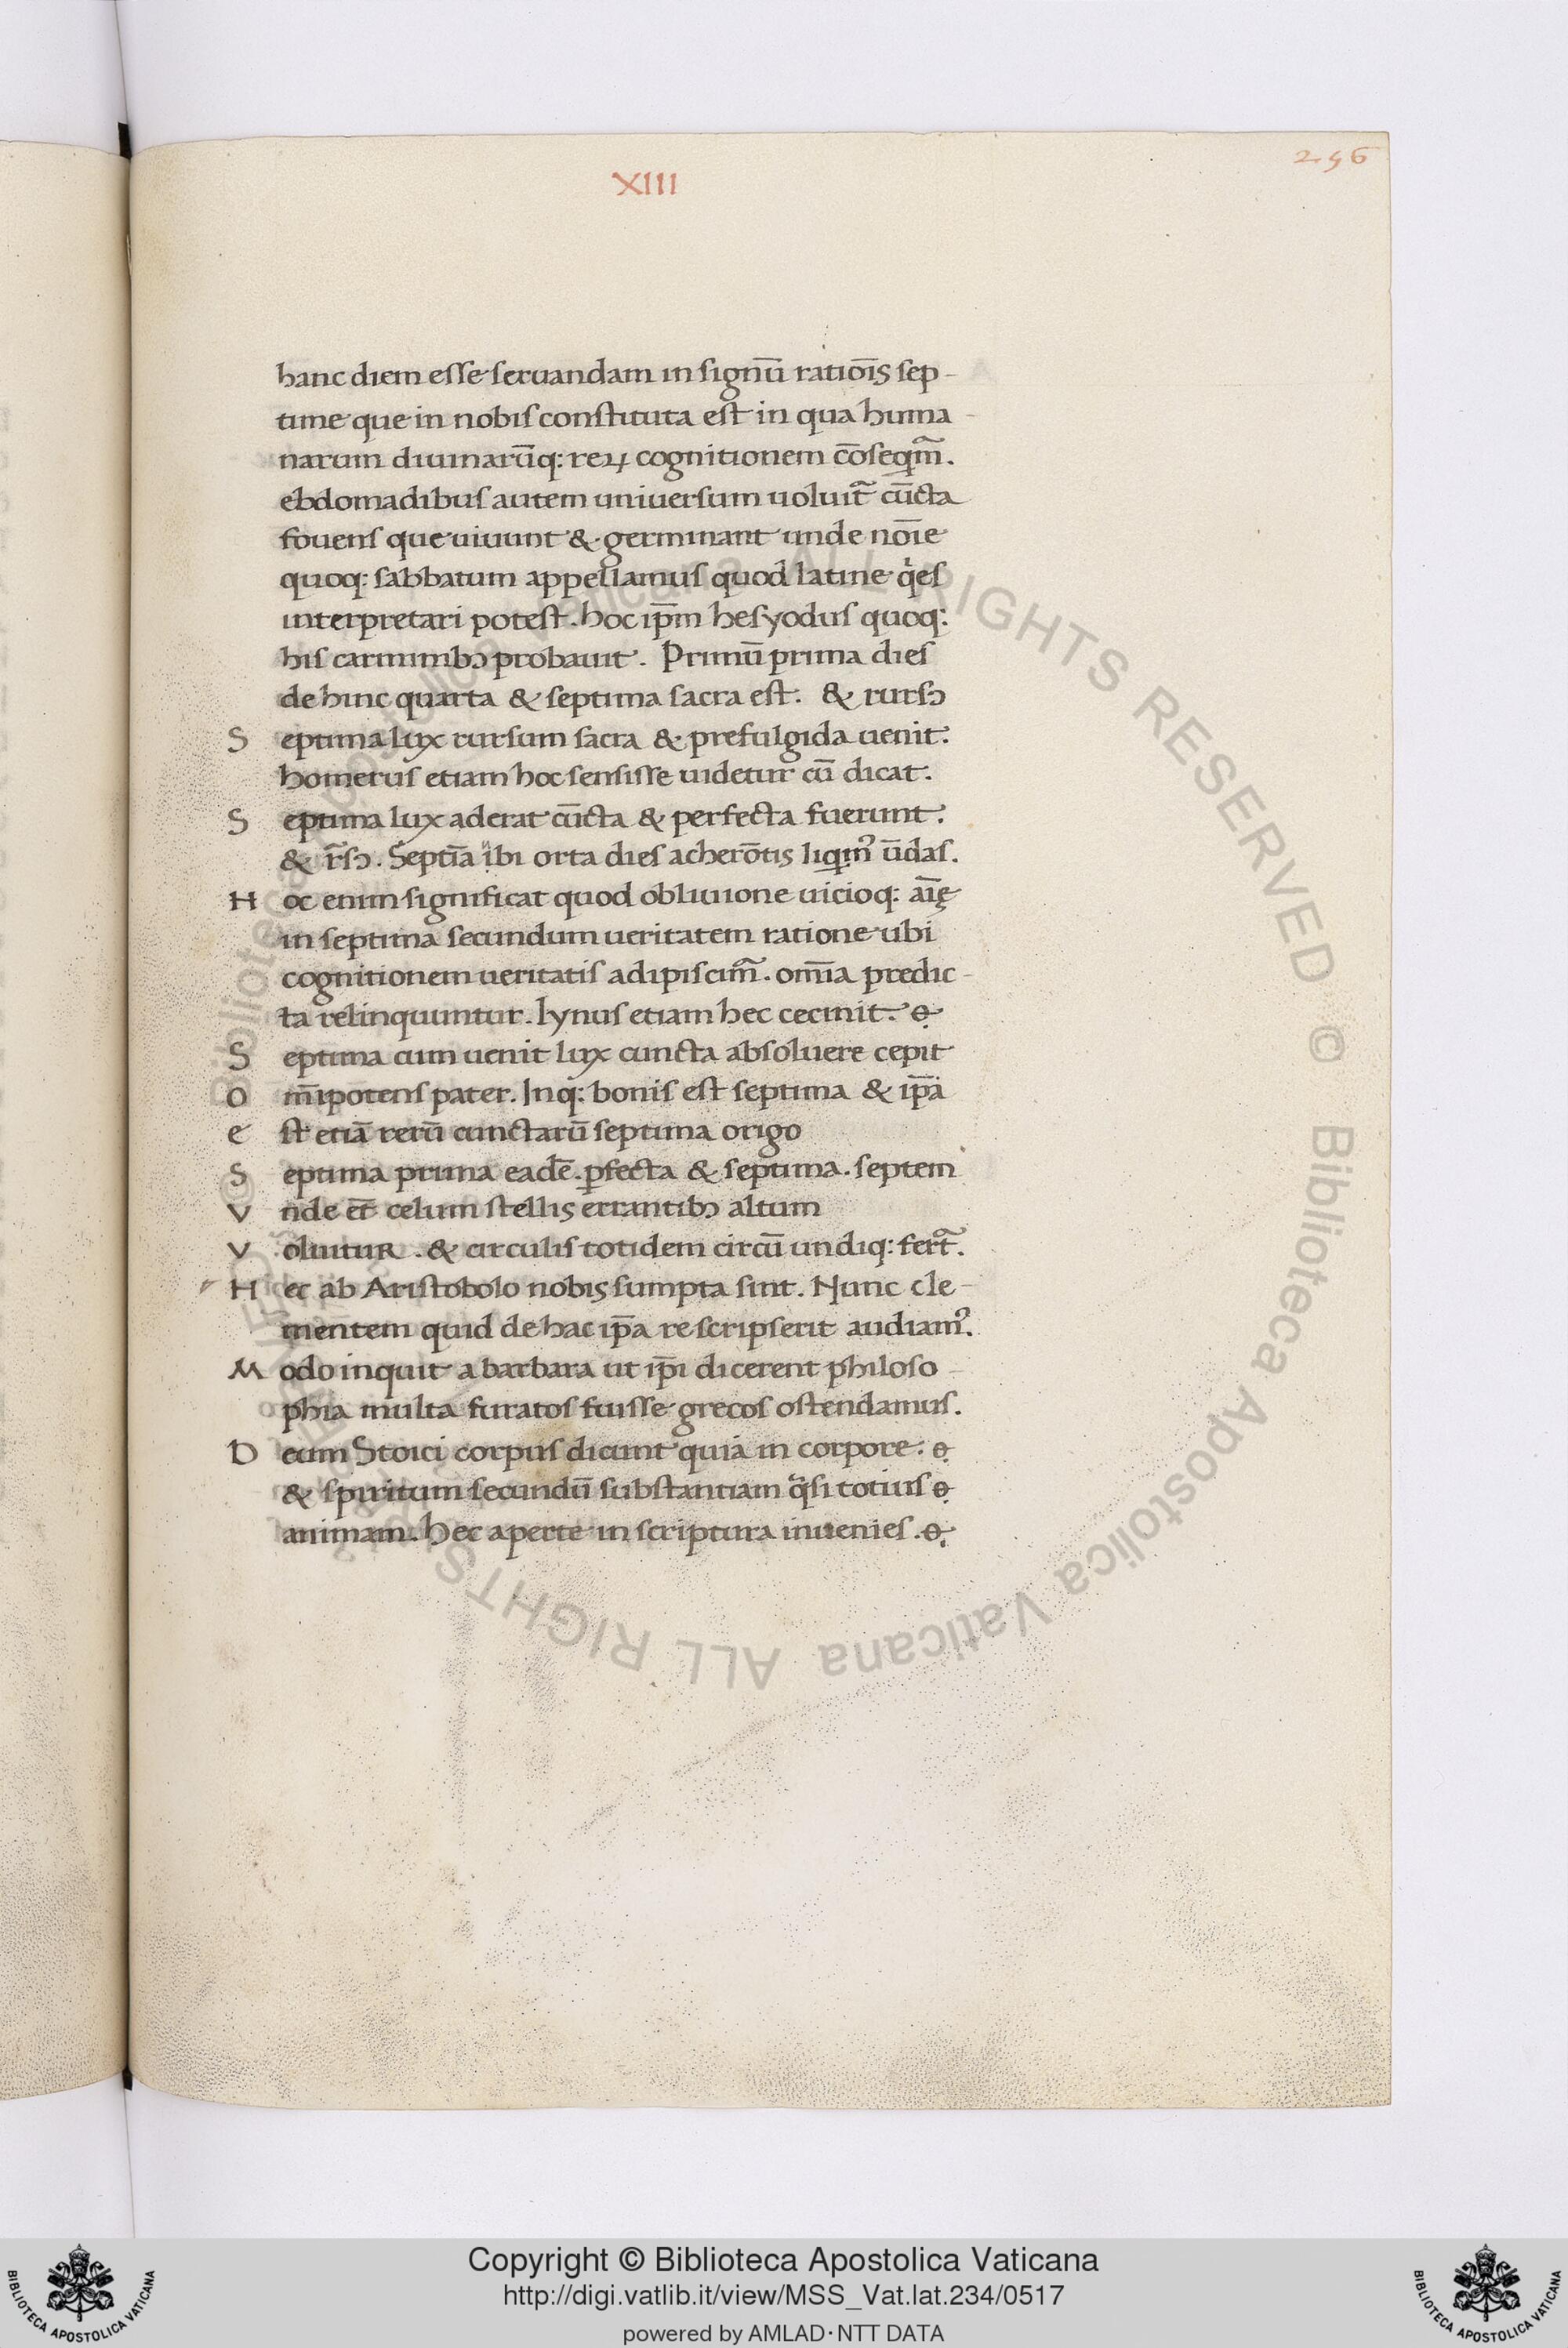 256
XIII
hanc diem esse seruandam in signū ratiōıs sep-
time que in nobis constituta est in qua huma-
narum diuinarūq: reꝝ cognitionem cōseqm̃.
ebdomadibus autem uniuersum uoluit᷉ cūcta
fouens que uiuunt & germinant unde noı̄e
quoq: sabbatum appellamus quod latine qͥes
interpretari potest. hoc ip̄m hesyodus quoq:
his carminibꝫ probauit. Primū prima dies
de hinc quarta & septima sacra est. & rursꝫ
Septima lux rursum sacra & prefulgida uenit.
homerus etiam hoc sensisse uidetur cū dicat.
Septima lux aderat cūcta & perfecta fuerunt.
& r̄sꝫ. Septīa ibi orta dies acherōtis liqimꝰ ūdas.
Hoc enim significat quod obliuione uicioq: aı̄ę
in septima secundum ueritatem ratione ubi
cognitionem ueritatis adipiscim᷉. om̄ia predic-
ta relinquuntur. lynus etiam hec cecinit.
Septima cum uenit lux cuncta absoluere cepit
Om̄ipotens pater. Inq: bonis est septima & ip̄a
est etiā rerū cunctarū septima origo
Septima prima eadē. ꝑfecta & septima. septem
Vnde et̄ celum stellis errantibꝫ altum
Voluitur. & circulis totidem circū undiq: fert᷉.
Hec ab Aristobolo nobis sumpta sint. Nunc cle-
mentem quid de hac ip̄a re scripserit audiamꝰ.
Modo inquit a barbara ut ip̄i dicerent philoso-
phia multa furatos fuisse grecos ostendamus.
Deum Stoici corpus dicunt quia in corpore.
& spiritum secundū substantiam qͣsi totius
animam. hec aperte in scriptura inuenies.
© Biblioteca Apostolica Vaticana ALL RIGHTS RESERVED
Copyright © Biblioteca Apostolica Vaticana
http://digi.vatlib.it/view/MSS_Vat.lat.234/0517
powered by AMLAD·NTT DATA
BIBLIOTECA APOSTOLICA VATICANA
BIBLIOTECA APOSTOLICA VATICANA